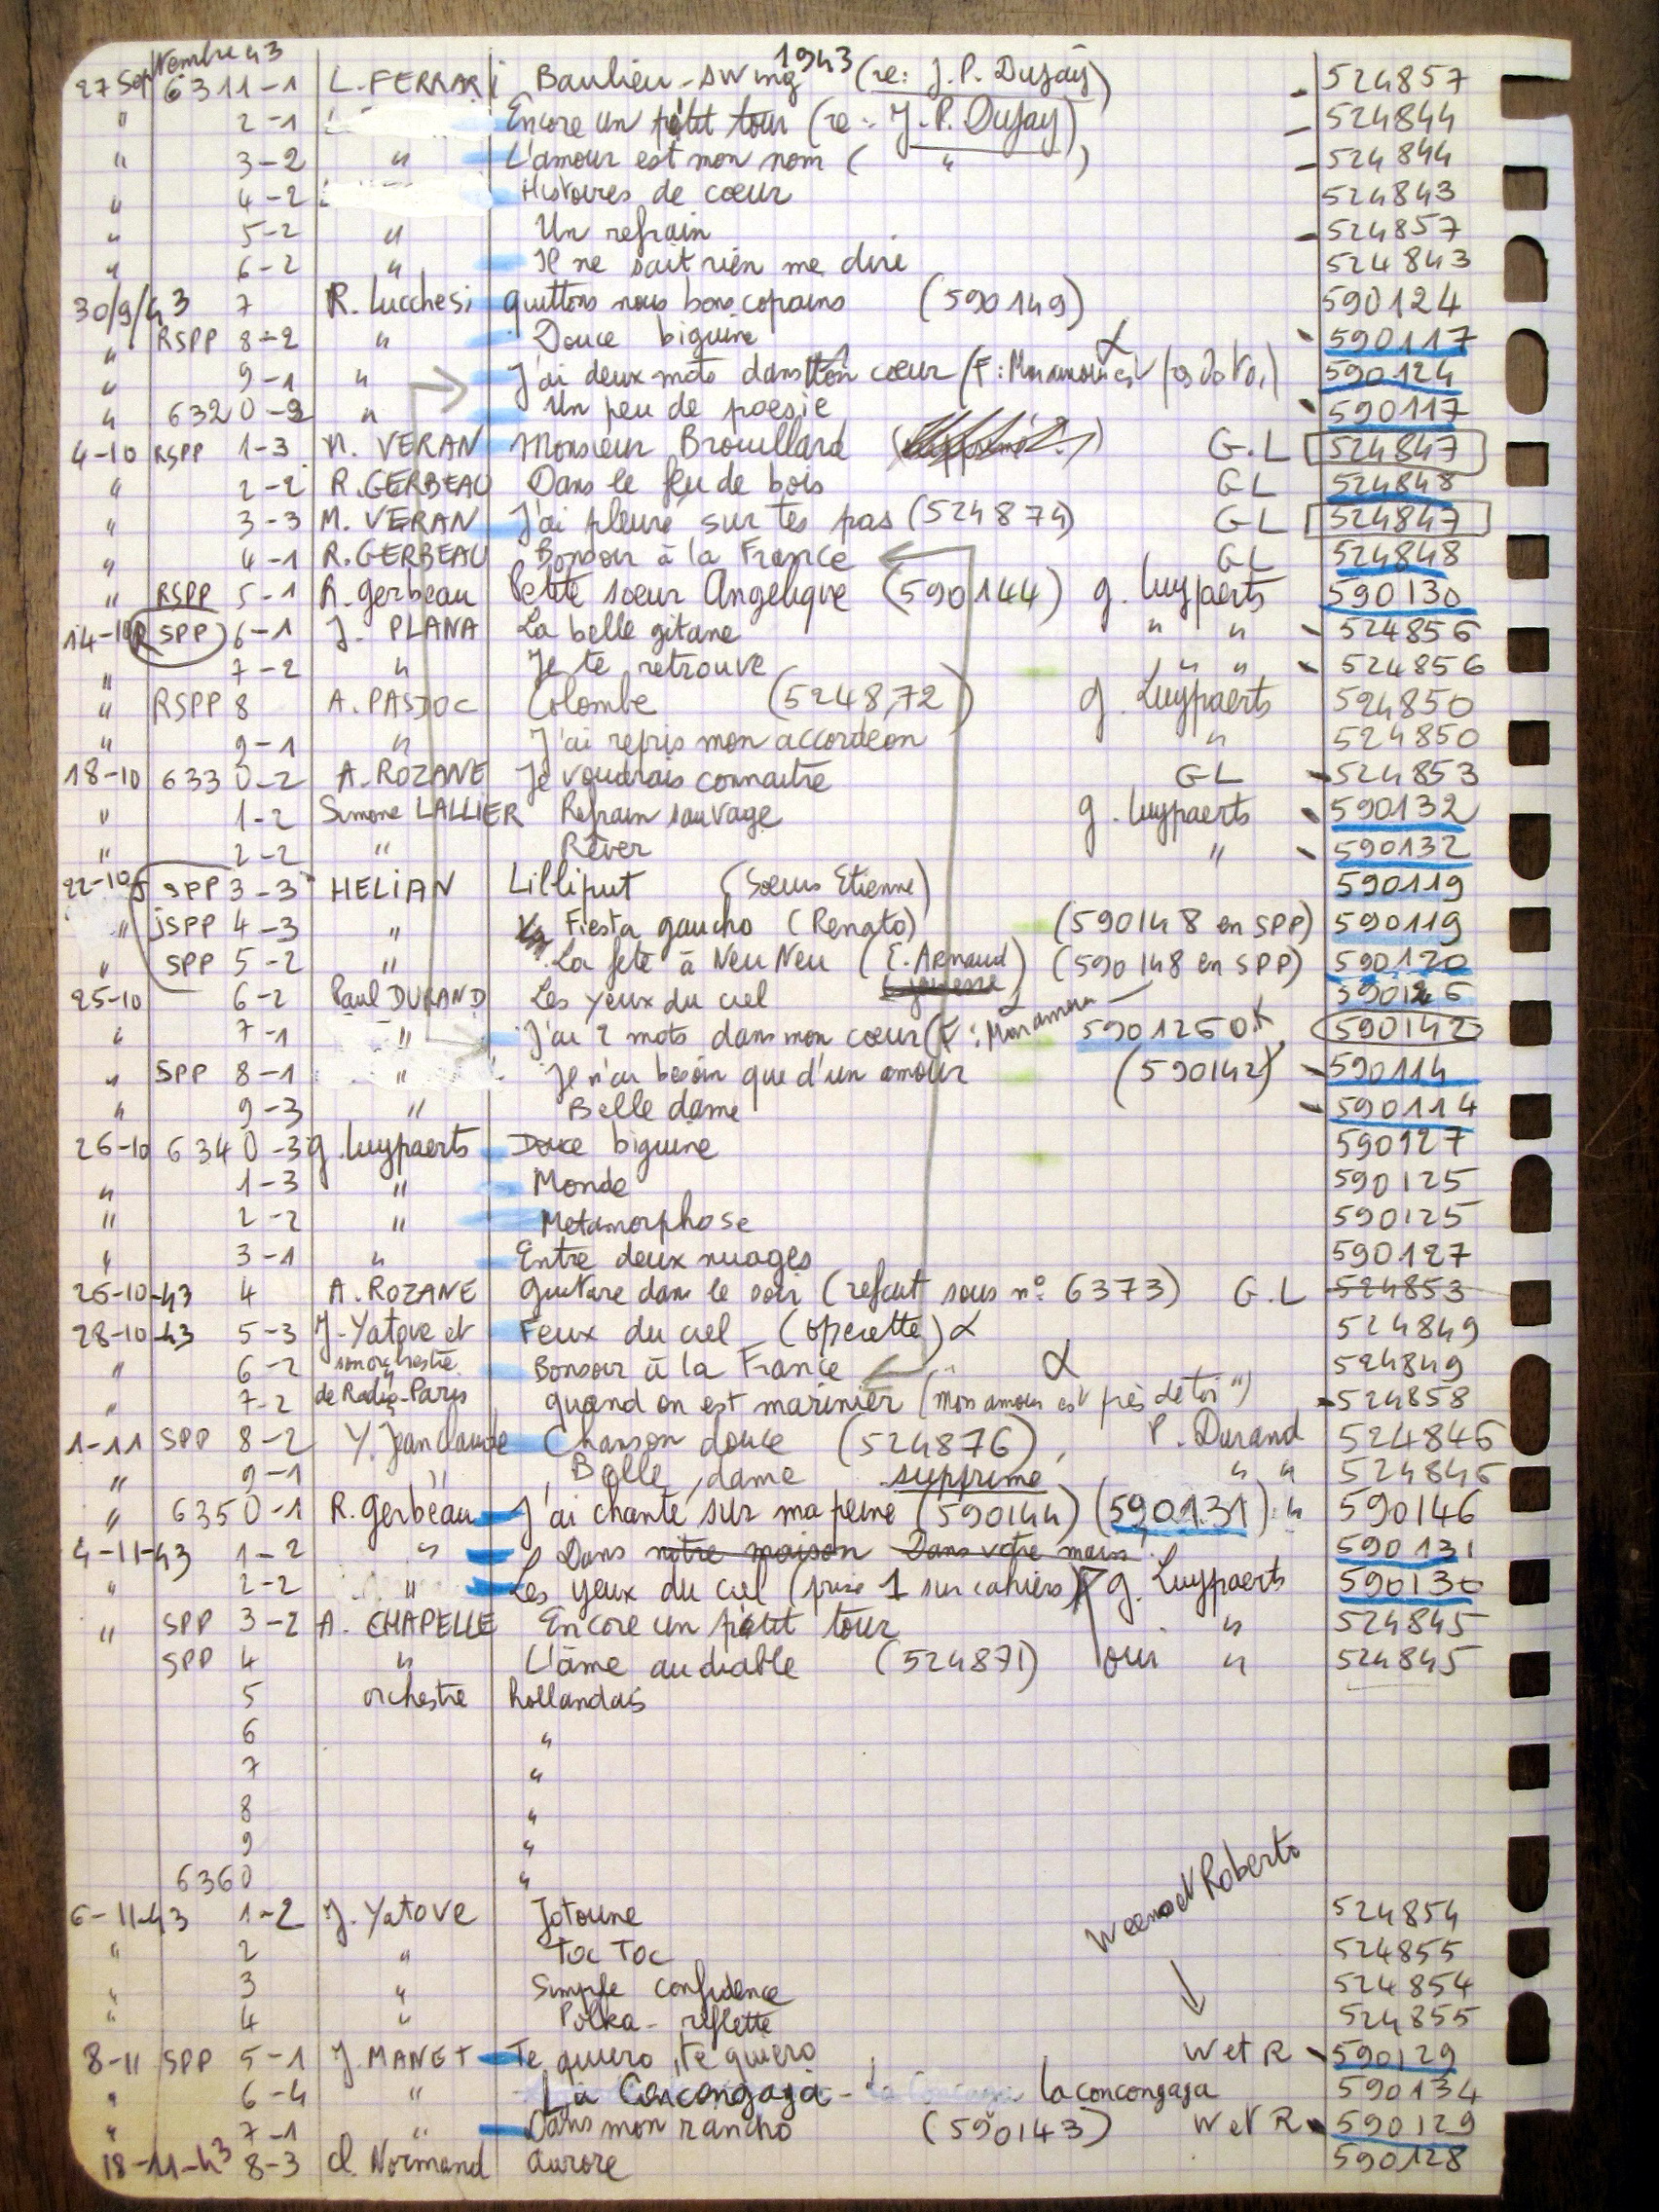 1943
27 Septembre 43 6311-1 L. FERRARI Baulieu-swing (re: J.P. Dujay) - 524857
" 2-1 Encore un petit tour (re: J.P. Dujay) - 524844
" 3-2 " L'amour est mon nom ( " ) - 524844
" 4-2 Histoires de cœur 524843
" 5-2 " Un refrain - 524857
" 6-2 " Il ne sait rien me dire 524843
30/9/43 7 R. Lucchesi quittons nous bons copains (590149) 590124
" RSPP 8-2 " Douce biguine 590117
" 9-1 " J'ai deux mots dans cœur 590124
" 6320-3 " Un peu de poesie 590117
4-10 RSPP 1-3 M. VERAN Monsieur Brouillard G.L 524847
" 2-2 R. GERBEAU Dans le feu de bois GL 524848
" 3-3 M. VERAN J'ai pleuré sur tes pas (524874) GL 524847
" 4-1 R. GERBEAU Bonsoir à la France GL 524848
" RSPP 5-1 R. gerbeau Petite sœur Angelique (590144) g. Luypaerts 590130
14-10 RSPP 6-1 J. PLANA La belle gitane " " - 524856
" 7-2 " Je te retrouve " " - 524856
" RSPP 8 A. PASDOC Colombe (524872) g. Luypaerts 524850
" 9-1 " J'ai repris mon accordeon " 524850
18-10 6330-2 A. ROZANE Je voudrais connaitre GL - 524853
" 1-2 Simone LALLIER Refrain sauvage g. Luypaerts - 590132
" 2-2 " Rêver " - 590132
22-10 SPP 3-3 HELIAN Lilliput (Sœurs Etienne) 590119
" jSPP 4-3 " Fiesta gaucho (Renato) (590148 en SPP) 590119
" SPP 5-2 " La fete à Neu Neu (E. Arnaud) (590148 en SPP) 590120
25-10 6-2 Paul DURAND Les yeux du ciel 590126
" 7-1 " J'ai 2 mots dans mon cœur (F: Mon amour 590126 O.K. 590142
" SPP 8-1 " Je n'ai besoin que d'un amour (590142) - 590114
" 9-3 " Belle dame - 590114
26-10 6340-3 g. Luypaerts Douce biguine 590127
" 1-3 " Monde 590125
" 2-2 " Metamorphose 590125
" 3-1 " Entre deux nuages 590127
26-10-43 4 A. ROZANE guitare dans le soir (refait sous n° 6373) G.L 524853
28-10-43 5-3 J. Yatove et Feux du ciel (operette) α 524849
" 6-2 son orchestre Bonsoir à la France α 524849
" 7-2 de Radio-Paris quand on est marinier (mon amour est près de toi") - 524858
1-11 SPP 8-2 Y. Jeanclaude Chanson douce (524876) P. Durand 524846
" 9-1 " Belle dame supprime " " 524846
" 6350-1 R. gerbeau J'ai chanté sur ma peine (590144) (590131) " 590146
4-11-43 1-2 " Dans notre maison Dans votre main 590131
" 2-2 " Les yeux du ciel (prise 1 sur cahiers) g. Luypaerts 590130
" SPP 3-2 A. CHAPELLE Encore un petit tour " 524845
SPP 4 " L'âme au diable (524871) oui " 524845
5 orchestre hollandais
6 "
7 "
8 "
9 "
6360 "
Weeno et Roberto
6-11-43 1-2 J. Yatove Jotoune 524854
" 2 " Toc Toc 524855
" 3 " Simple confidence 524854
" 4 " Polka-reflette 524855
8-11 SPP 5-1 J. MANET Te quiero, te quiero W et R - 590129
" 6-4 " La Concongaga - la concongaga 590134
" 7-1 " Dans mon rancho (590143) W et R - 590129
18-11-43 8-3 Cl. Normand aurore 590128